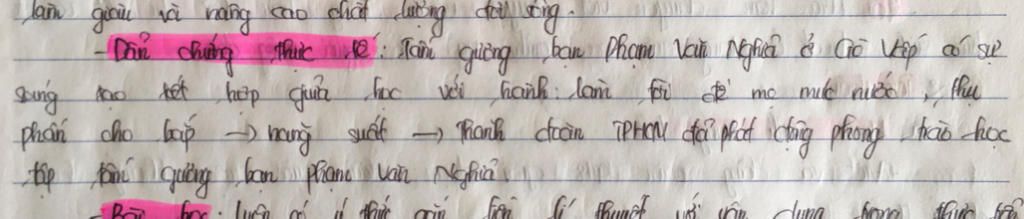 làm giàu và nâng cao chất lượng đời sống.
- Dẫn chứng thực tế: Tấm gương bạn Phạm Văn Nghĩa ở Gò Vấp có sự
sáng tạo kết hợp giữa học với hành: làm tời để mẹ múc nước, thụ
phấn cho bắp → năng suất → Thành đoàn TPHCM đã phát động phong trào học
tập tấm gương bạn Phạm Văn Nghĩa.
- Bài học: luôn có ý thức gắn liền lí thuyết với vận dụng trong thực tế